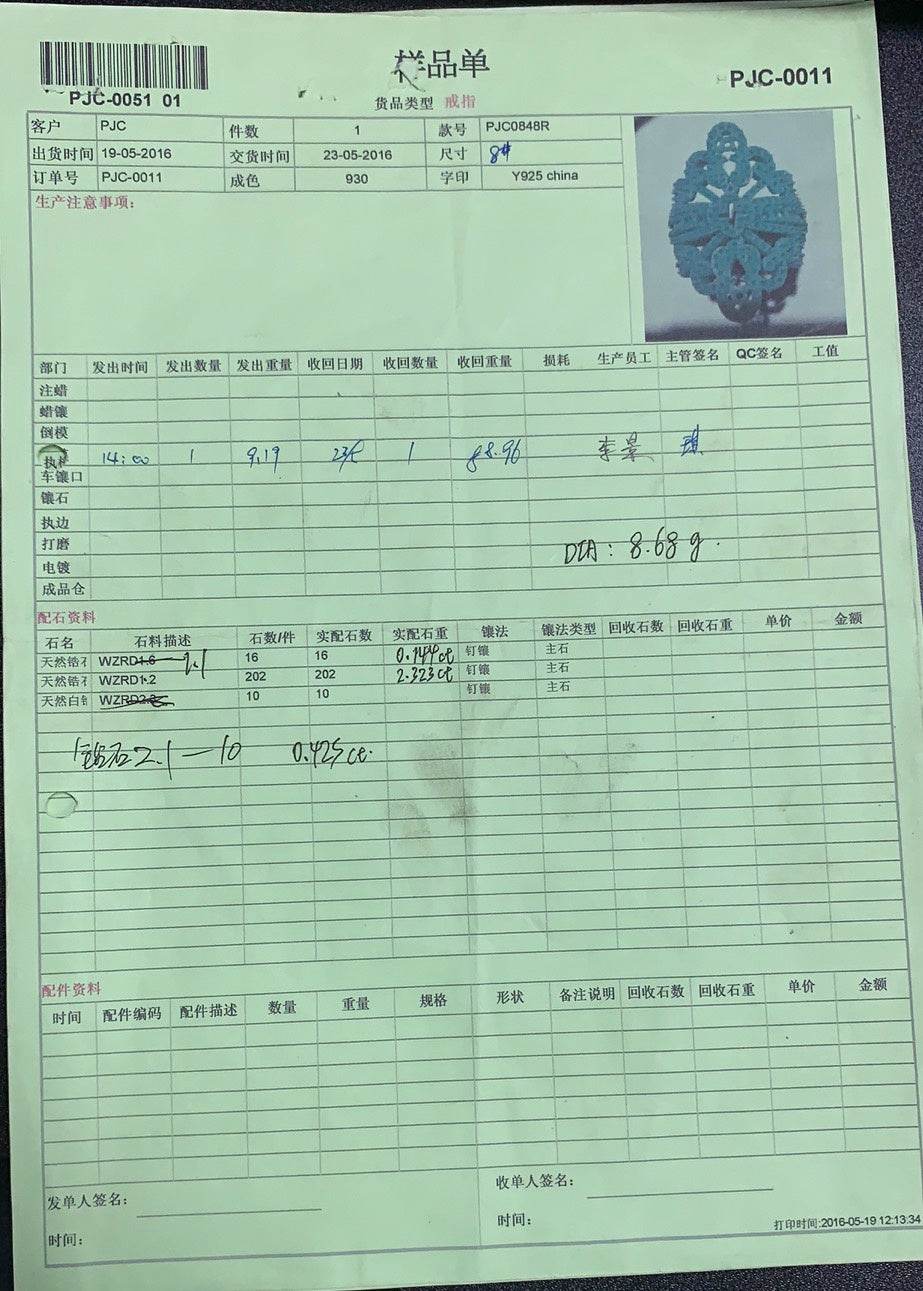 样品单
PJC-0011
PJC-0051 01
货品类型 戒指
客户 PJC 件数 1 款号 PJC0848R
出货时间 19-05-2016 交货时间 23-05-2016 尺寸 8#
订单号 PJC-0011 成色 930 字印 Y925 china
生产注意事项:
部门 发出时间 发出数量 发出重量 收回日期 收回数量 收回重量 损耗 生产员工 主管签名 QC签名 工值
注蜡
蜡镶
倒模
执 14:00 1 9.19 1 8.96 李景
车镶口
镶石
执边
打磨
DIA: 8.68 g.
电镀
成品仓
配石资料
石名 石料描述 石数/件 实配石数 实配石重 镶法 镶法类型 回收石数 回收石重 单价 金额
天然锆石 WZRD1.6 16 16 0.144ct 钉镶 主石
天然锆石 WZRD1.2 202 202 2.323ct 钉镶 主石
天然白 WZRD2.2 10 10 钉镶 主石
2.1—10 0.425ct.
配件资料
时间 配件编码 配件描述 数量 重量 规格 形状 备注说明 回收石数 回收石重 单价 金额
发单人签名:
收单人签名:
时间:
时间:
打印时间:2016-05-19 12:13:34